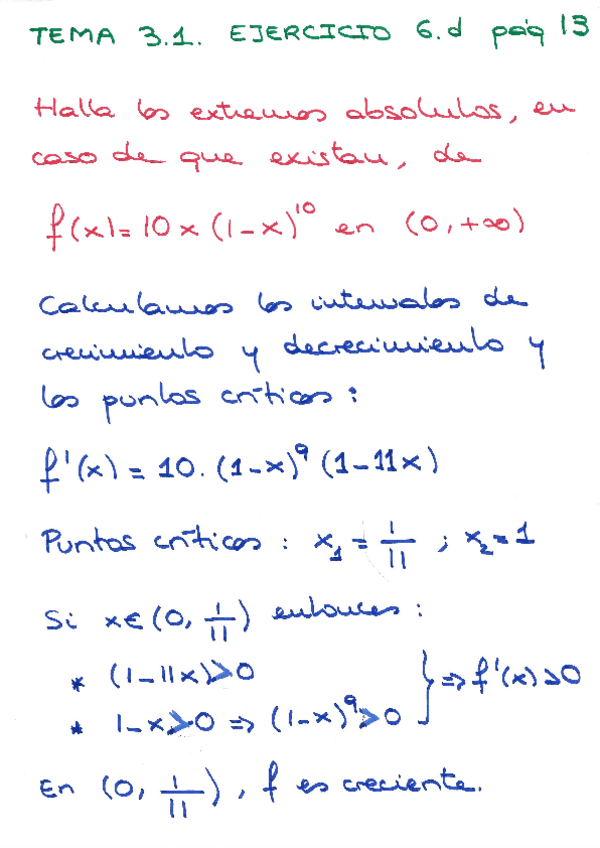 TEMA 3.1. EJERCICIO 6.d pág 13
Halla los extremos absolutos, en
caso de que existan, de
f(x)=10x(1-x)^10 en (0,+∞)
Calculamos los intervalos de
crecimiento y decrecimiento y
los puntos críticos:
f'(x) = 10.(1-x)^9 (1-11x)
Puntos críticos : x₁ = 1/11 ; x₂ = 1
Si x∈(0, 1/11) entonces :
* (1-11x)>0
* 1-x>0 ⇒ (1-x)^9>0 } ⇒ f'(x)>0
En (0, 1/11), f es creciente.